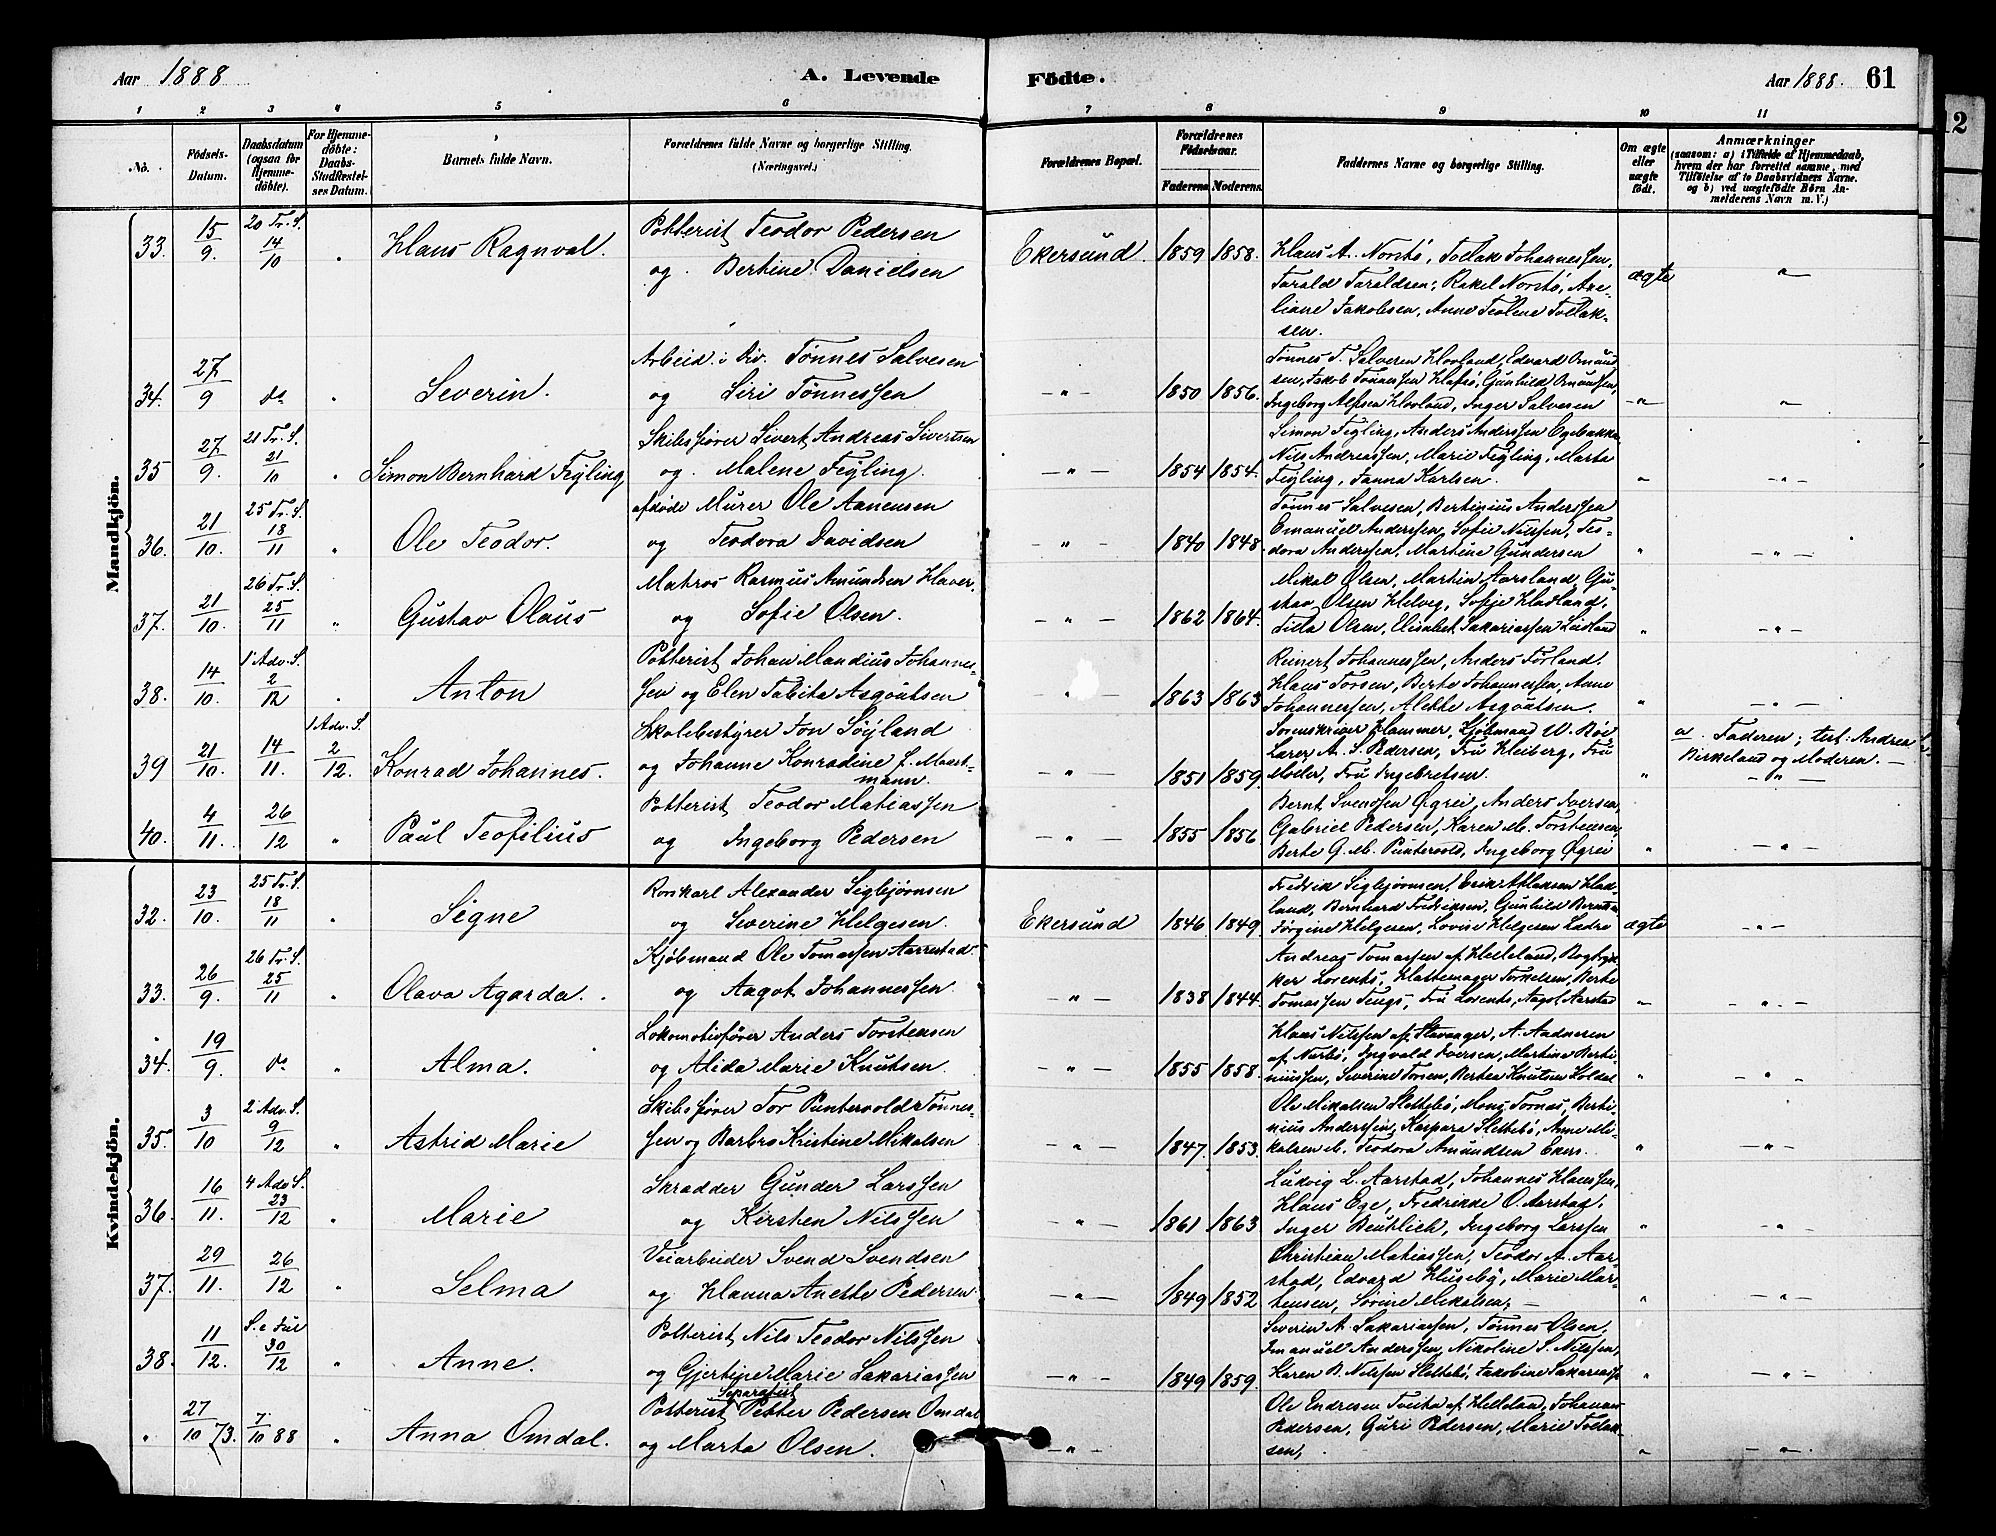 Aar 1888
A. Levende Födte.
Aar 1888. 61
1 2 3 4 5 6 7 8 9 10 11
No.
Födsels-Datum.
Daabsdatum (ogsaa for Hjemmedöbte).
For Hjemmedöbte: Daabs-Stadfæstelses Datum.
Barnets fulde Navn.
Forældrenes fulde Navne og borgerlige Stilling. (Næringsvei.)
Forældrenes Bopæl.
Forældrenes Födselsaar.
Faderens Moderens.
Faddernes Navne og borgerlige Stilling.
Om ægte eller uægte födt.
Anmærkninger
(saasom: a) i Tilfælde af Hjemmedaab,
hvem der har forrettet samme, med
Tilföielse af to Daabsvidners Navne.
og b) ved uægtefödte Börn Anmelderens Navn m. V.)
Mandkjön.
33. 15/9. 20 Tr. S. 14/10 " Klaus Ragnval. Potterist Teodor Pedersen
og Bertine Danielsen
Ekersund. 1859 1858. Klaus A. Norstø, Tollak Johannessen,
Tarald Taraldsen, Rakel Norstø, Axe-
liane Jakobsen, Anne Teoline Tollak-
sen.
ægte "
34. 27/9 do " Severin. Arbeid. i Div. Tønnes Salvesen
og Siri Tønnessen
— " — 1850 1856. Tønnes T. Salvesen Hovland, Edvard Omund-
sen, Jakob Tønnessen Hafsø, Gunhild Omundsen,
Ingeborg Alfsen Hovland, Inger Salvesen
— " — "
35 27/9. 21 Tr. S. 21/10 " Simon Bernhard Feyling Skibsfører Sivert Andreas Sivertsen
og Malene Feyling.
— " — 1854 1854. Simon Feyling, Anders Anderssen Egebakken
Nils Andreassen, Marie Feyling, Marta
Feyling, Janna Karlsen.
" — " —
36. 21/10. 25 Tr. S. 18/11 " Ole Teodor. afdøde Murer Ole Aanensen
og Teodora Davidsen
— " — 1840 1848. Tønnes Salvesen, Bertinius Anderssen
Emanuel Anderssen, Sofie Nilssen, Teo-
dora Anderssen, Martine Gundersen
" — " —
37. 21/10. 26 Tr. S. 25/11 " Gustav Olaus Matros Rasmus Amundsen Haver,
og Sofie Olsen.
— " — 1862 1864. Mikal Olsen, Martin Aarsland, Gu-
stav Olsen Helvig, Sofie Hadland,
Lilla Olsen, Elisabet Sakariassen Leidland
" — " —
38. 14/10. 1 Adv. S. 2/12 " Anton Potterist Johan Mandius Johannes-
sen og Elen Tabita Asgautsen
— " 1863 1863 Reinert Johannessen, Anders Førland,
Klaus Torsen, Berte Johannessen, Anne
Johannessen, Alette Asgautsen.
" — " —
39 21/10. 14/11. 1 Adv. S. 2/12. Konrad Johannes. Skolebestyrer Jon Søyland
og Johanne Konradine f. Maast-
mann.
— " — 1851 1859. Sorenskriver Hammer, Kjøbmand W. Bøe
Lærer A. S. Pedersen, Fru Kleiberg, Fru
Moeler, Fru Ingebretsen.
" a. Faderen; test: Andrea
Birkeland og Moderen. —
— " —
40. 4/11. 26/12 " Paul Teofilius Potterist Teodor Matiassen
og Ingeborg Pedersen
— " — 1855 1856 Bernt Svendsen Øgrei, Anders Iversen,
Gabriel Pedersen, Karen M. Torstensen,
Berte G. M. Puntervold, Ingeborg Øgrei
" — " —
Kvindekjön.
32. 23/10. 25 Tr. S. 18/11 " Signe Rorskarl Alexander Sigbjørnsen
og Severine Helgesen.
Ekersund 1846 1849. Fredrik Sigbjørnsen, Erik Aslaksen Had-
land, Bernhard Fredriksen, Gunhild Berntsen
Jørgine Helgesen, Lovise Helgesen Ladre
ægte — " —
33. 26/9. 26 Tr. S. 25/11 " Olava Agarda. Kjøbmand Ole Tomassen Aarrestad
og Aagot Johannessen
— " — 1838 1844. Andreas Tomassen af Helleland, Bogtryk-
ker Lorents, Hattemager Torkelsen, Berte
Tomassen Tengs, Fru Lorents, Aagot Aarstad
" — " —
34. 19/9. do " Alma. Lokomotivfører Anders Torstensen
og Alida Marie Knutsen.
— " — 1855 1858. Klaus Nilssen af Stavanger, A. Aadnesen
af Nærbø, Ingvald Iversen, Martine Berti-
niussen, Severine Torsen, Bertea Knutsen Koldal
" — " —
35. 3/10 2 Adv. S. 9/12 " Astrid Marie Skibsfører Tor Puntervold Tønnes-
sen og Barbro Kristine Mikalsen
— " — 1847. 1853. Ole Mikalsen Slettebø, Mons Tornas, Berti-
nius Anderssen, Kaspara Slettebø, Anne Mi-
kalsen M. Teodora Amundsen Eker.
" — " —
36. 16/11. 4 Adv S. 23/12 " Marie Skrædder Gunder Larssen
og Kirsten Nilssen
— " — 1861 1863 Ludvig L. Aarstad, Johannes Klaussen,
Klaus Ege, Fredrikke O. Aarstad,
Inger Beutlich, Ingeborg Larssen
" "
37. 29/11. 26/12 " Selma Veiarbeider Svend Svendsen
og Hanna Anette Pedersen
— " — 1849 1852 Christian Matiassen, Teodor A. Aar-
stad, Edvard Huseby, Marie Mar-
tensen, Sørine Mikalsen, —
" — " —
38. 11/12. S. e Jul 30/12 " Anne. Potterist Nils Teodor Nilssen
og Gjertine Marie Sakariassen
— " — 1849 1859. Severin A. Sakariassen, Tønnes Olsen,
Imanuel Anderssen, Nikoline S. Nilssen,
Karen B. Nilssen Slettebø, Jakobine Sakariassen
" — " —
" 27/10 73. 7/10 88 " Anna Omdal. Separatist
Potterist Petter Pedersen Omdal
og Marta Olsen.
— " — Ole Endresen Tveita af Helleland, Johannes
Pedersen, Guri Pedersen, Marie Tollak-
sen,
" — " —
12